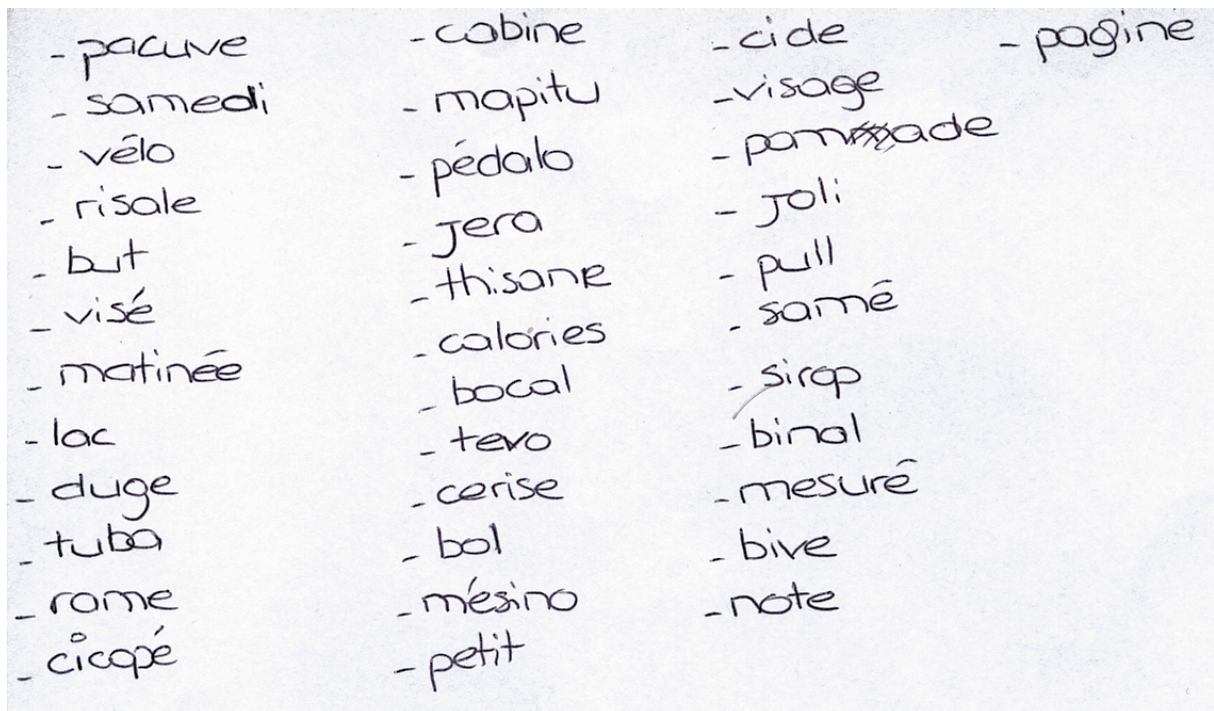 - pacuve
- samedi
- vélo
- risale
- but
- visé
- matinée
- lac
- duge
- tuba
- rame
- cicopé
- cabine
- mapitu
- pédalo
- jera
- thisane
- calories
- bocal
- tevo
- cerise
- bol
- mésino
- petit
- cide
- visage
- pommade
- joli
- pull
- samé
- sirop
- binal
- mesuré
- bive
- note
- pagine